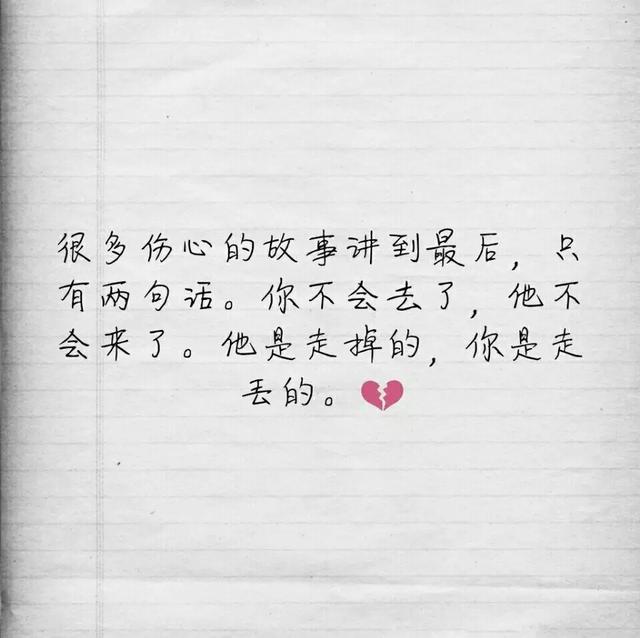 很多伤心的故事讲到最后，只
有两句话。你不会去了，他不
会来了。他是走掉的，你是走
丢的。💔